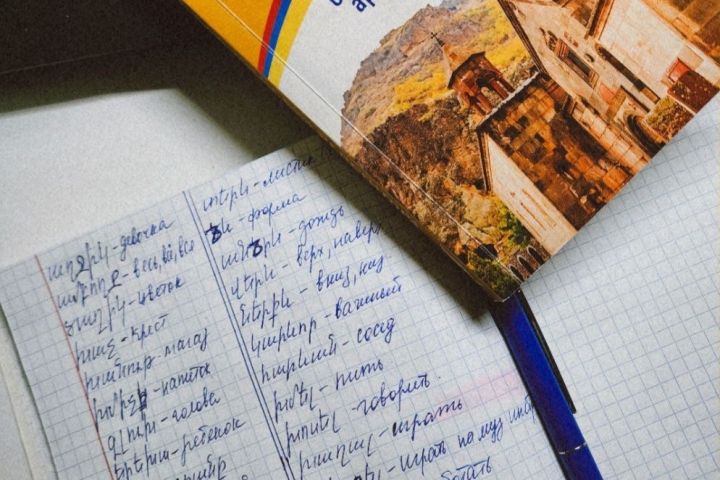 աղջիկ - девочка
ամբողջ - весь, вся, все
ծաղիկ - цветок
խաչ - крест
խանութ - магаз
խմիչք - напиток
գլուխ - голова
երեխա - ребенок
տերև - листик
ձև - форма
անձրև - дождь
վերև - верх, наверх
ներքև - вниз, низ
կարևոր - важный
հարևան - сосед
խմել - пить
խոսել - говорить.
խաղալ - играть
играть на муз